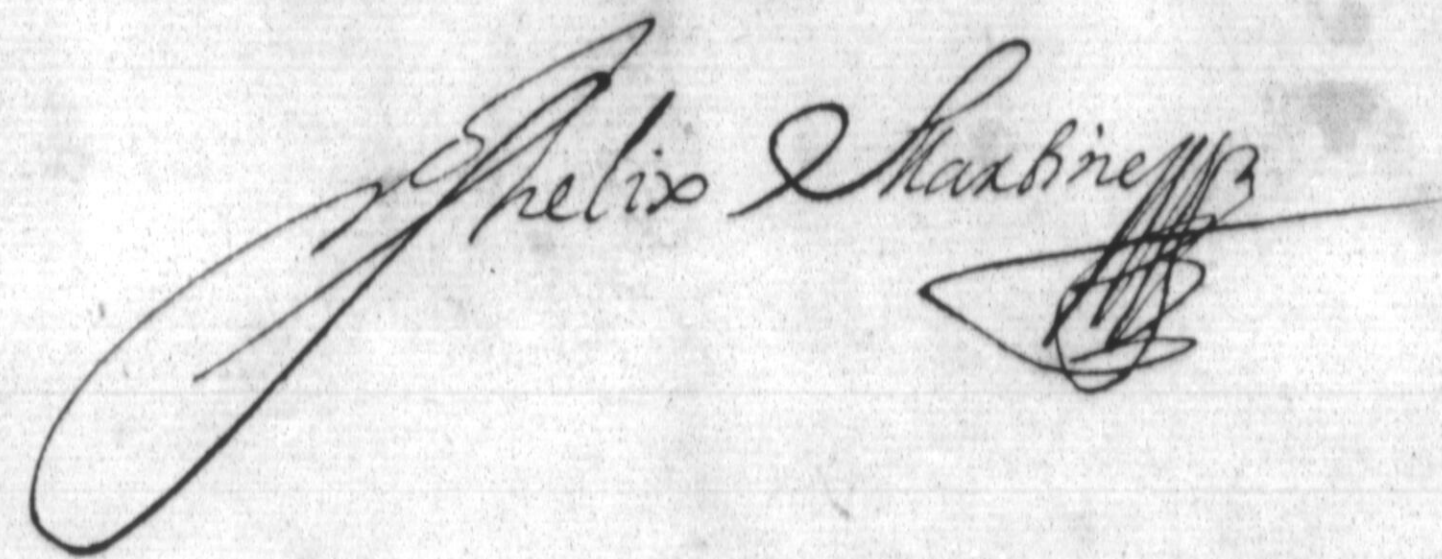 Phelix Martinez